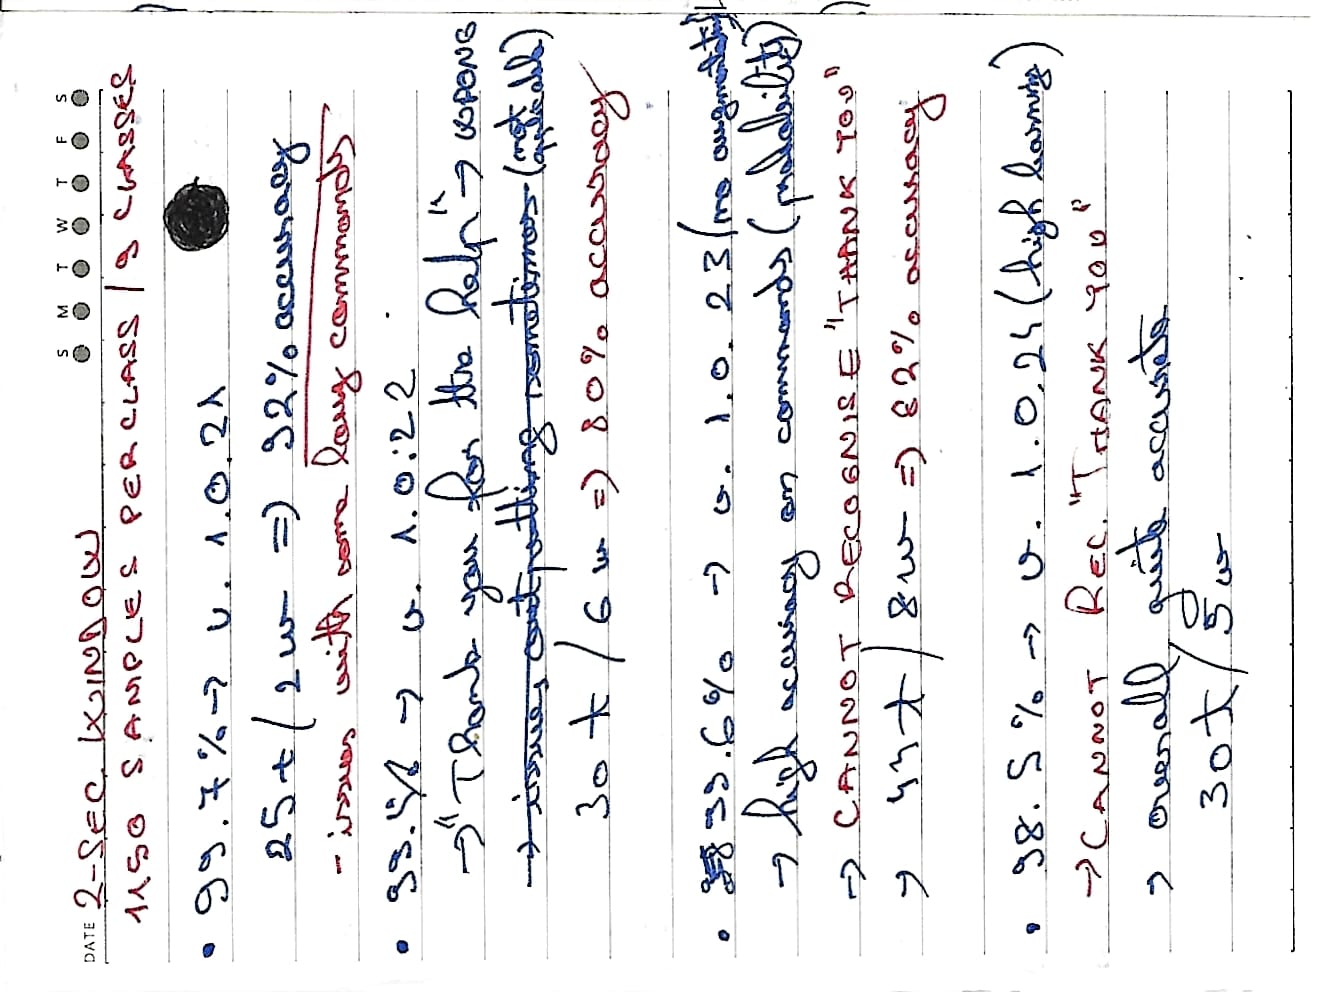 S M T W T F S
DATE 2-SEC WINDOW
1150 SAMPLES PER CLASS / 9 CLASSES
• 99.7% → v. 1.0.21
25t / 2w => 92% accuracy
- issues with some long commands
• → v. 1.0.22
→ "Thank you for the help" → WRONG
→ issues outputting sometimes (not applicable)
30t / 6w => 80% accuracy
• 99.6% → v. 1.0.23 (no augmentation)
→ high accuracy on commands (probability)
→ CANNOT RECOGNISE "THANK YOU"
→ 44t / 8w => 82% accuracy
• 98.5% → v. 1.0.24 (high learning)
→ CANNOT REC. "THANK YOU"
→ overall, quite accurate
30t / 5w